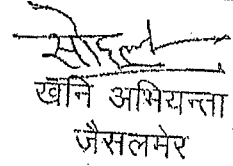 खनि अभियन्ता
जैसलमेर